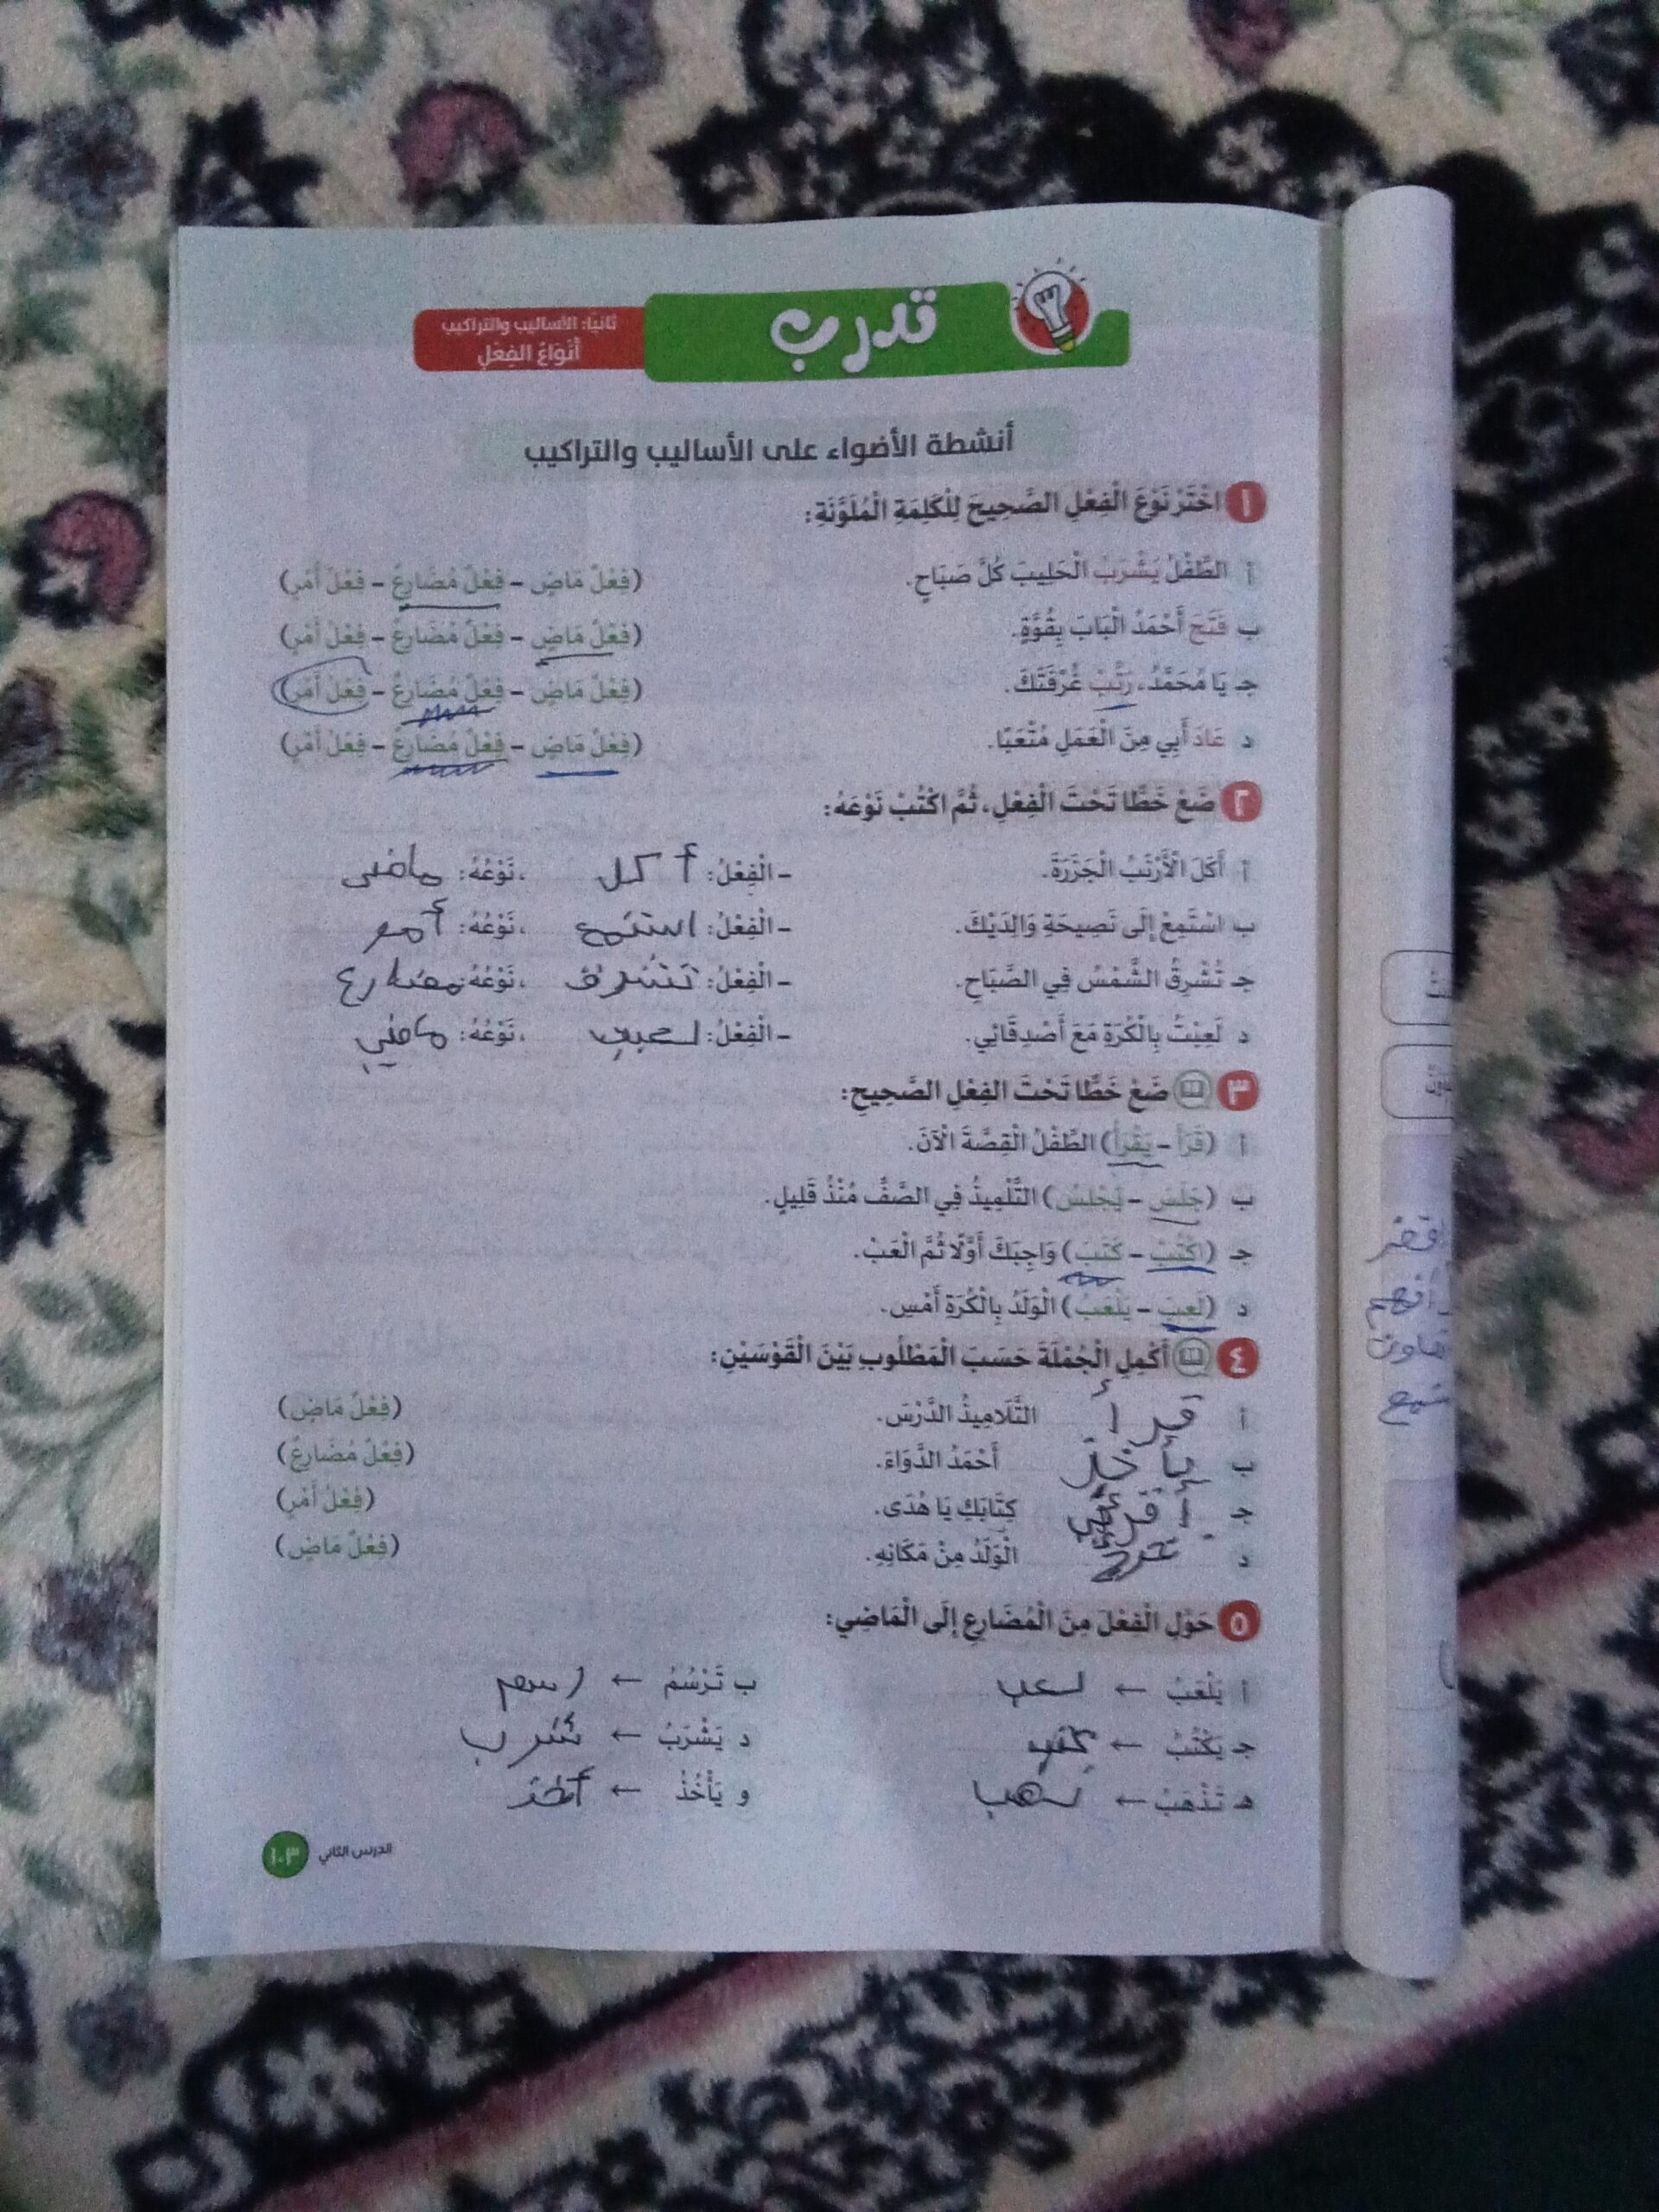 تدرب
ثانيًا: الأساليب والتراكيب
أَنْوَاعُ الفِعْلِ
أنشطة الأضواء على الأساليب والتراكيب
١ اخْتَرْ نَوْعَ الْفِعْلِ الصَّحِيحَ لِلْكَلِمَةِ الْمُلَوَّنَةِ:
أ الطِّفْلُ يَشْرَبُ الْحَلِيبَ كُلَّ صَبَاحٍ. (فِعْلٌ مَاضٍ – فِعْلٌ مُضَارِعٌ – فِعْلُ أَمْرٍ)
ب فَتَحَ أَحْمَدُ الْبَابَ بِقُوَّةٍ. (فِعْلٌ مَاضٍ – فِعْلٌ مُضَارِعٌ – فِعْلُ أَمْرٍ)
جـ يَا مُحَمَّدُ، رَتِّبْ غُرْفَتَكَ. (فِعْلٌ مَاضٍ – فِعْلٌ مُضَارِعٌ – فِعْلُ أَمْرٍ)
د عَادَ أَبِي مِنَ الْعَمَلِ مُتْعَبًا. (فِعْلٌ مَاضٍ – فِعْلٌ مُضَارِعٌ – فِعْلُ أَمْرٍ)
٢ ضَعْ خَطًّا تَحْتَ الْفِعْلِ، ثُمَّ اكْتُبْ نَوْعَهُ:
أ أَكَلَ الْأَرْنَبُ الْجَزَرَةَ. – الْفِعْلُ: أكل ، نَوْعُهُ: ماضى
ب اسْتَمِعْ إِلَى نَصِيحَةِ وَالِدَيْكَ. – الْفِعْلُ: استمع ، نَوْعُهُ: أمر
جـ تُشْرِقُ الشَّمْسُ فِي الصَّبَاحِ. – الْفِعْلُ: تشرق ، نَوْعُهُ: مضارع
د لَعِبْتُ بِالْكُرَةِ مَعَ أَصْدِقَائِي. – الْفِعْلُ: لعبت ، نَوْعُهُ: ماضي
٣ ضَعْ خَطًّا تَحْتَ الفِعْلِ الصَّحِيحِ:
أ (قَرَأَ – يَقْرَأُ) الطِّفْلُ الْقِصَّةَ الْآنَ.
ب (جَلَسَ – يَجْلِسُ) التِّلْمِيذُ فِي الصَّفِّ مُنْذُ قَلِيلٍ.
جـ (اكْتُبْ – كَتَبَ) وَاجِبَكَ أَوَّلًا ثُمَّ الْعَبْ.
د (لَعِبَ – يَلْعَبُ) الْوَلَدُ بِالْكُرَةِ أَمْسِ.
٤ أَكْمِلِ الْجُمْلَةَ حَسَبَ الْمَطْلُوبِ بَيْنَ الْقَوْسَيْنِ:
أ قرأ التَّلَامِيذُ الدَّرْسَ. (فِعْلٌ مَاضٍ)
ب يأخذ أَحْمَدُ الدَّوَاءَ. (فِعْلٌ مُضَارِعٌ)
جـ كِتَابَكِ يَا هُدَى. (فِعْلُ أَمْرٍ)
د الْوَلَدُ مِنْ مَكَانِهِ. (فِعْلٌ مَاضٍ)
٥ حَوِّلِ الْفِعْلَ مِنَ الْمُضَارِعِ إِلَى الْمَاضِي:
أ يَلْعَبُ ← لعب ب تَرْسُمُ ← رسم
جـ يَكْتُبُ ← كتب د يَشْرَبُ ← شرب
هـ تَذْهَبُ ← و يَأْخُذُ ← أخذ
الدرس الثاني ١٠٣